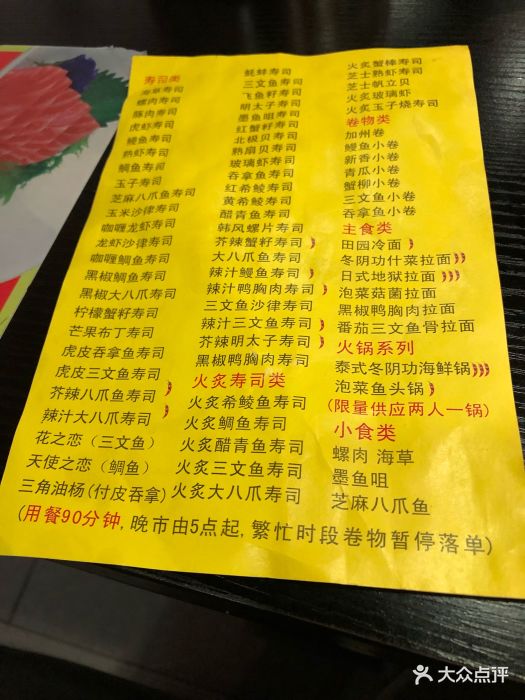 寿司类
海草寿司
螺肉寿司
陈肉寿司
虎虾寿司
鳗鱼寿司
熟虾寿司
鲷鱼寿司
玉子寿司
芝麻八爪鱼寿司
玉米沙律寿司
咖喱龙虾寿司
龙虾沙律寿司
咖喱鲷鱼寿司
黑椒鲷鱼寿司
黑椒大八爪寿司
柠檬蟹籽寿司
芒果布丁寿司
虎皮吞拿鱼寿司
虎皮三文鱼寿司
芥辣八爪鱼寿司
辣汁大八爪寿司
花之恋（三文鱼）
天使之恋（鲷鱼）
三角油杨(付皮吞拿)
蚝蚌寿司
三文鱼寿司
飞鱼籽寿司
明太子寿司
墨鱼咀寿司
红蟹籽寿司
北极贝寿司
熟扇贝寿司
玻璃虾寿司
吞拿鱼寿司
红希鲮寿司
黄希鲮寿司
醋青鱼寿司
韩风螺片寿司
芥辣蟹籽寿司
大八爪鱼寿司
辣汁鳗鱼寿司
辣汁鸭胸肉寿司
三文鱼沙律寿司
辣汁三文鱼寿司
芥辣明太子寿司
黑椒鸭胸肉寿司
火炙寿司类
火炙希鲮鱼寿司
火炙鲷鱼寿司
火炙醋青鱼寿司
火炙三文鱼寿司
火炙大八爪寿司
火炙蟹棒寿司
芝士熟虾寿司
芝士帆立贝
火炙玻璃虾
火炙玉子烧寿司
卷物类
加州卷
鳗鱼小卷
新香小卷
青瓜小卷
蟹柳小卷
三文鱼小卷
吞拿鱼小卷
主食类
田园冷面
冬阴功什菜拉面
日式地狱拉面
泡菜菇菌拉面
黑椒鸭胸肉拉面
番茄三文鱼骨拉面
火锅系列
泰式冬阴功海鲜锅
泡菜鱼头锅
(限量供应两人一锅)
小食类
螺肉 海草
墨鱼咀
芝麻八爪鱼
(用餐90分钟,晚市由5点起,繁忙时段卷物暂停落单)
大众点评